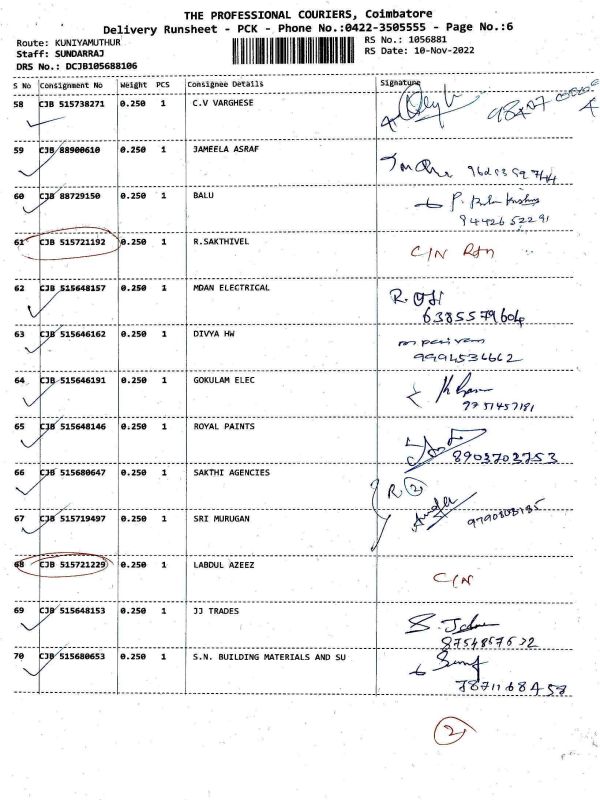 THE PROFESSIONAL COURIERS, Coimbatore
Delivery Runsheet - PCK - Phone No.:0422-3505555 - Page No.:6
Route: KUNIYAMUTHUR
RS No.: 1056881
Staff: SUNDARRAJ
RS Date: 10-Nov-2022
DRS No.: DCJB105688106
S No Consignment No Weight PCS Consignee Details Signature
58 CJB 515738271 0.250 1 C.V VARGHESE
59 CJB 88900610 0.250 1 JAMEELA ASRAF
60 CJB 88729150 0.250 1 BALU
9442652291
61 CJB 515721192 0.250 1 R.SAKTHIVEL C/N
62 CJB 515648157 0.250 1 MDAN ELECTRICAL
6385579604
63 CJB 515646162 0.250 1 DIVYA HW
9994534662
64 CJB 515646191 0.250 1 GOKULAM ELEC
9751457191
65 CJB 515648146 0.250 1 ROYAL PAINTS
8903703753
66 CJB 515680647 0.250 1 SAKTHI AGENCIES R 2
67 CJB 515719497 0.250 1 SRI MURUGAN
68 CJB 515721229 0.250 1 LABDUL AZEEZ
C/N
69 CJB 515648153 0.250 1 JJ TRADES
70 CJB 515680653 0.250 1 S.N. BUILDING MATERIALS AND SU
2